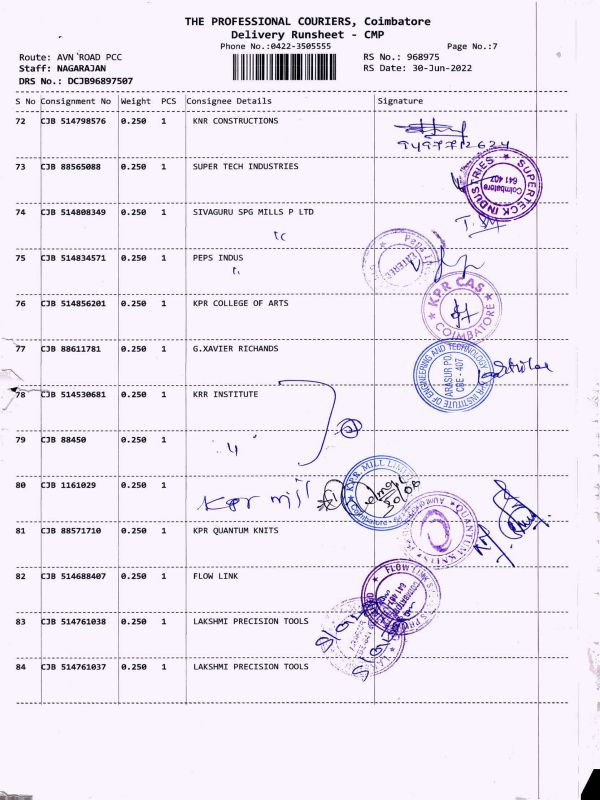 THE PROFESSIONAL COURIERS, Coimbatore
Delivery Runsheet - CMP
Phone No.:0422-3505555 Page No.:7
Route: AVN ROAD PCC RS No.: 968975
Staff: NAGARAJAN RS Date: 30-Jun-2022
DRS No.: DCJB96897507
S No Consignment No Weight PCS Consignee Details Signature
72 CJB 514798576 0.250 1 KNR CONSTRUCTIONS
73 CJB 88565088 0.250 1 SUPER TECH INDUSTRIES
SUPERTECK INDUSTRIES Coimbatore 641 407
74 CJB 514808349 0.250 1 SIVAGURU SPG MILLS P LTD
75 CJB 514834571 0.250 1 PEPS INDUS
76 CJB 514856201 0.250 1 KPR COLLEGE OF ARTS
KPR CAS COIMBATORE
77 CJB 88611781 0.250 1 G.XAVIER RICHANDS
KPR INSTITUTE OF ENGINEERING AND TECHNOLOGY ARASUR PO. CBE - 407
78 CJB 514530681 0.250 1 KRR INSTITUTE
79 CJB 88450 0.250 1
80 CJB 1161029 0.250 1 Kpr mill
KPR MILL Coimbatore 30/06
81 CJB 88571710 0.250 1 KPR QUANTUM KNITS
QUANTUM KNITS
82 CJB 514688407 0.250 1 FLOW LINK
FLOW LINK
83 CJB 514761038 0.250 1 LAKSHMI PRECISION TOOLS
84 CJB 514761037 0.250 1 LAKSHMI PRECISION TOOLS